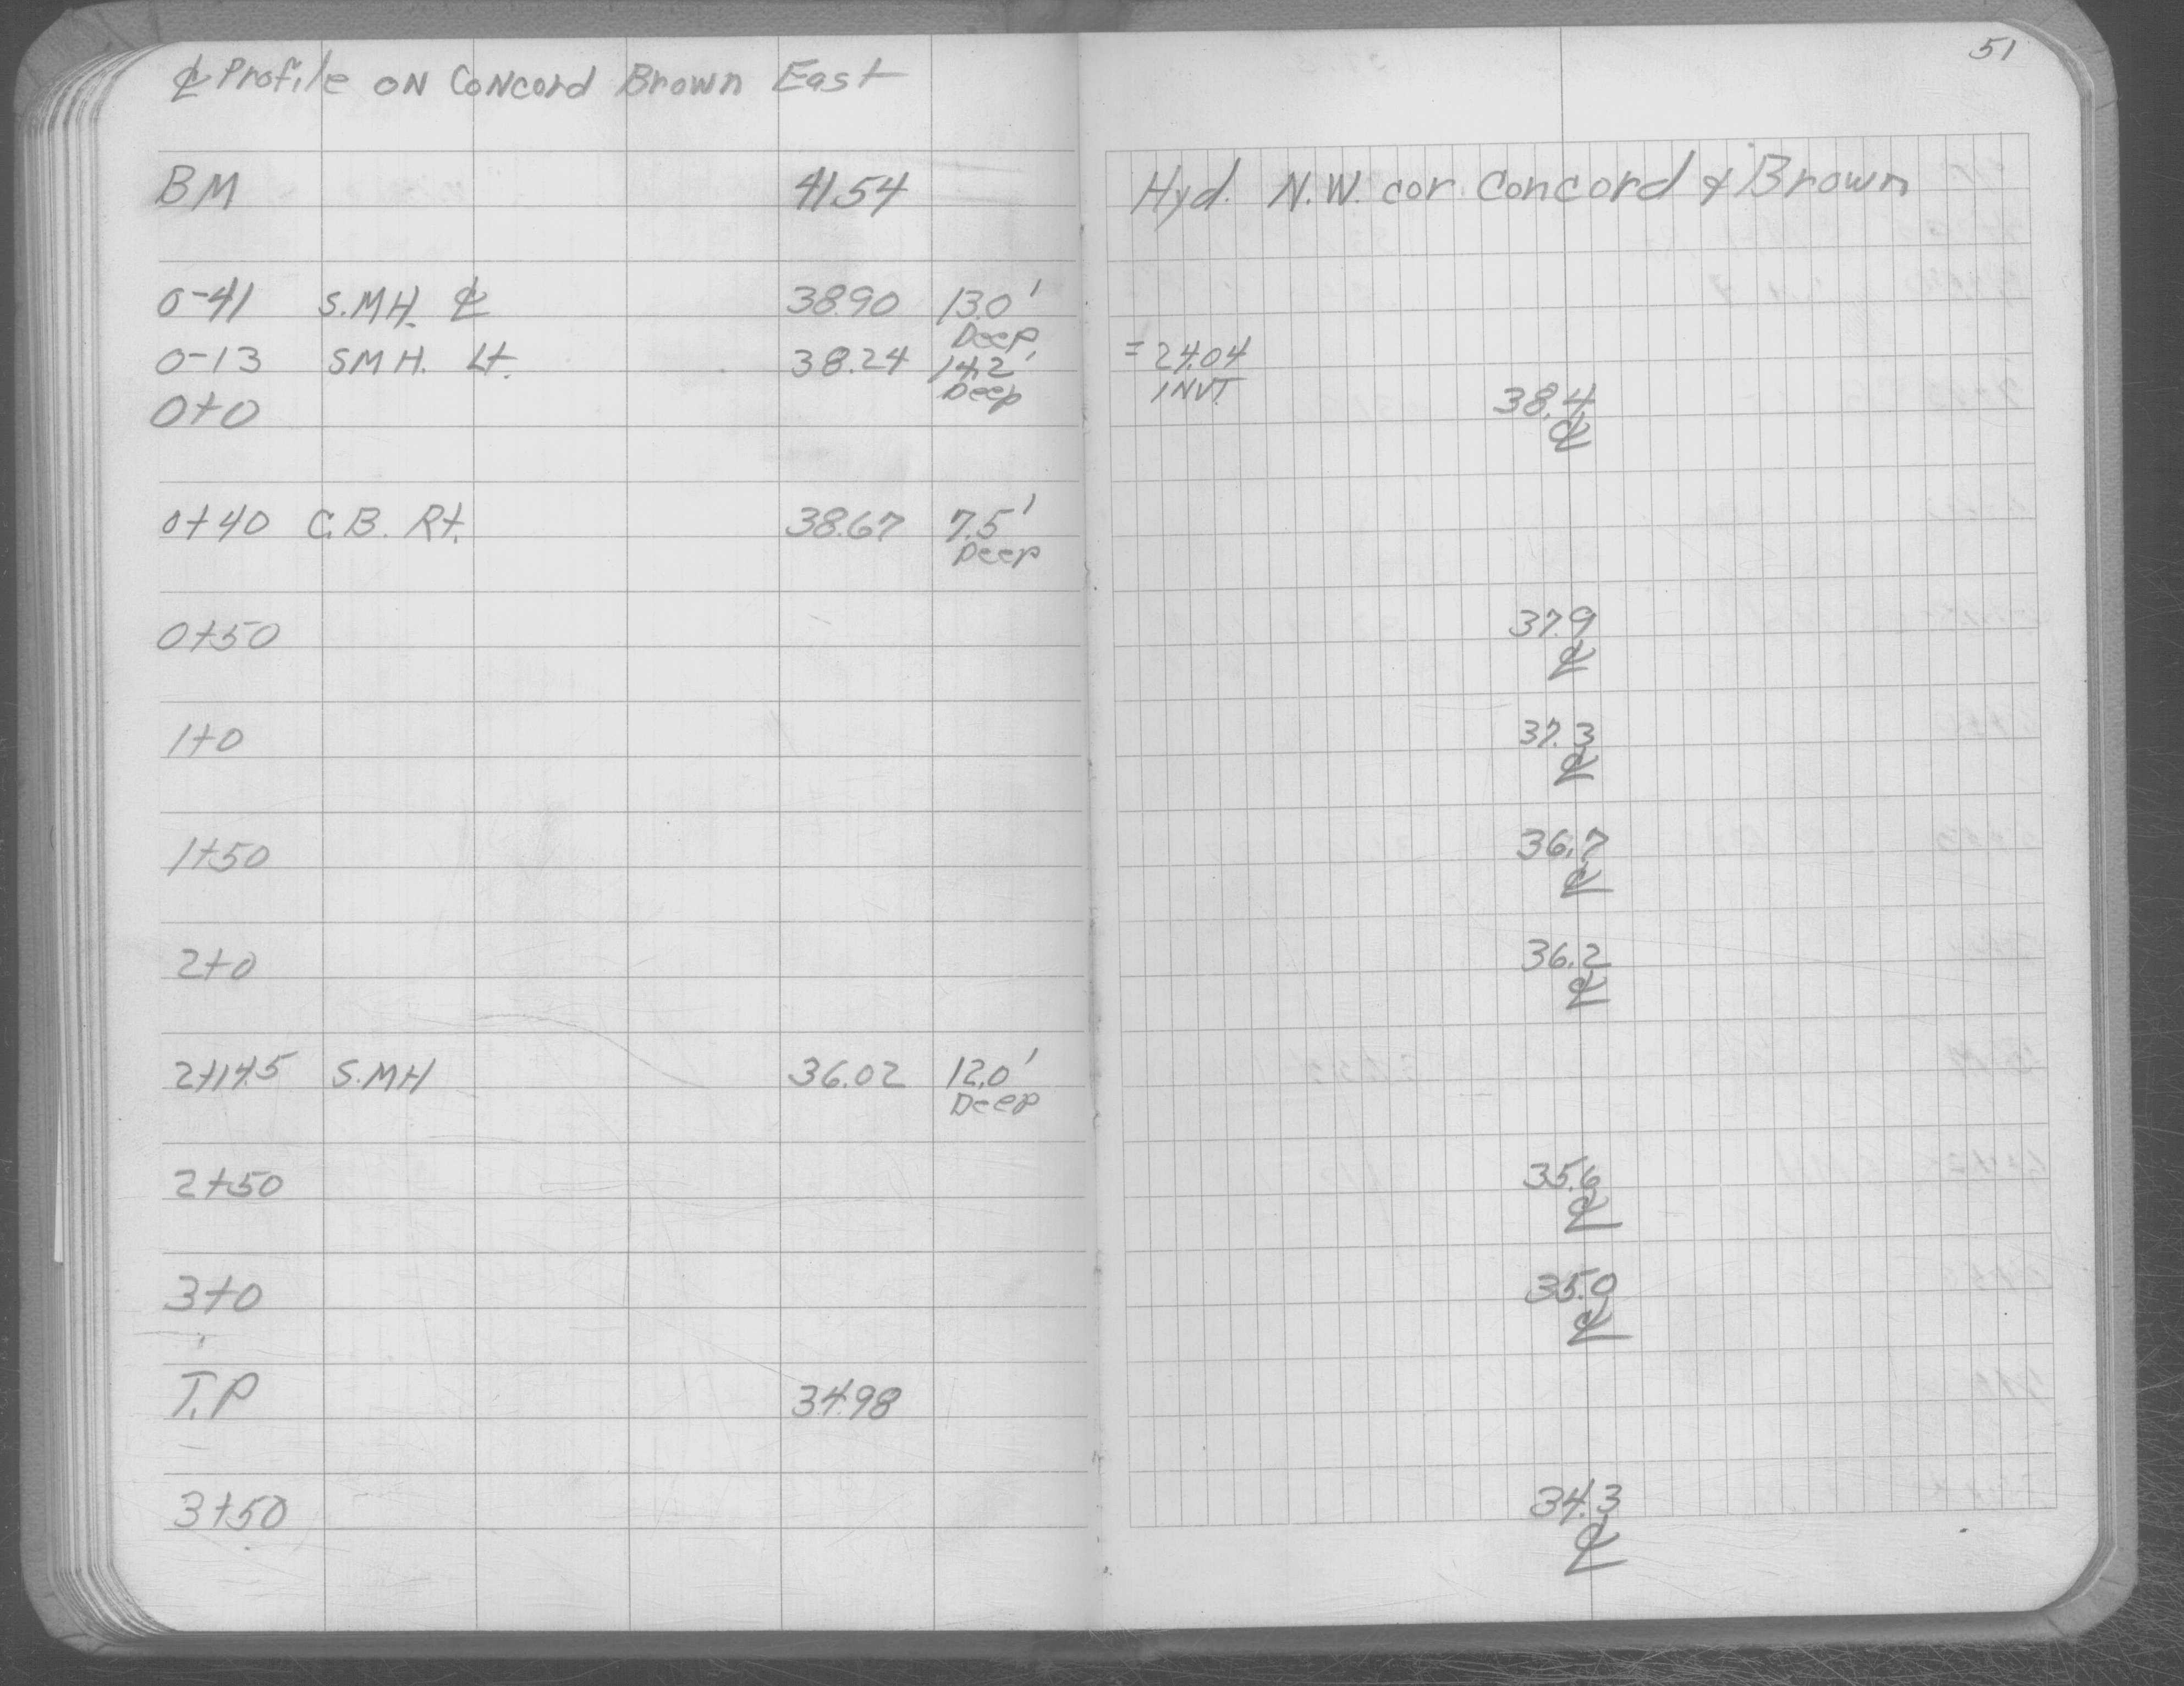 51
℄ Profile ON Concord Brown East
BM 41.54 Hyd. N.W. cor. Concord & Brown
0-41 S.MH. ℄ 38.90 13.0'
Deep
0-13 SMH. Lt. 38.24 14.2' = 24.04
Deep INVT.
0+0 38.4
℄
0+40 C.B. Rt. 38.67 7.5'
Deep
0+50 37.9
℄
1+0 37.3
℄
1+50 36.7
℄
2+0 36.2
℄
2+14.5 S.MH 36.02 12.0'
Deep
2+50 35.6
℄
3+0 35.0
℄
T.P 34.98
3+50 34.3
℄